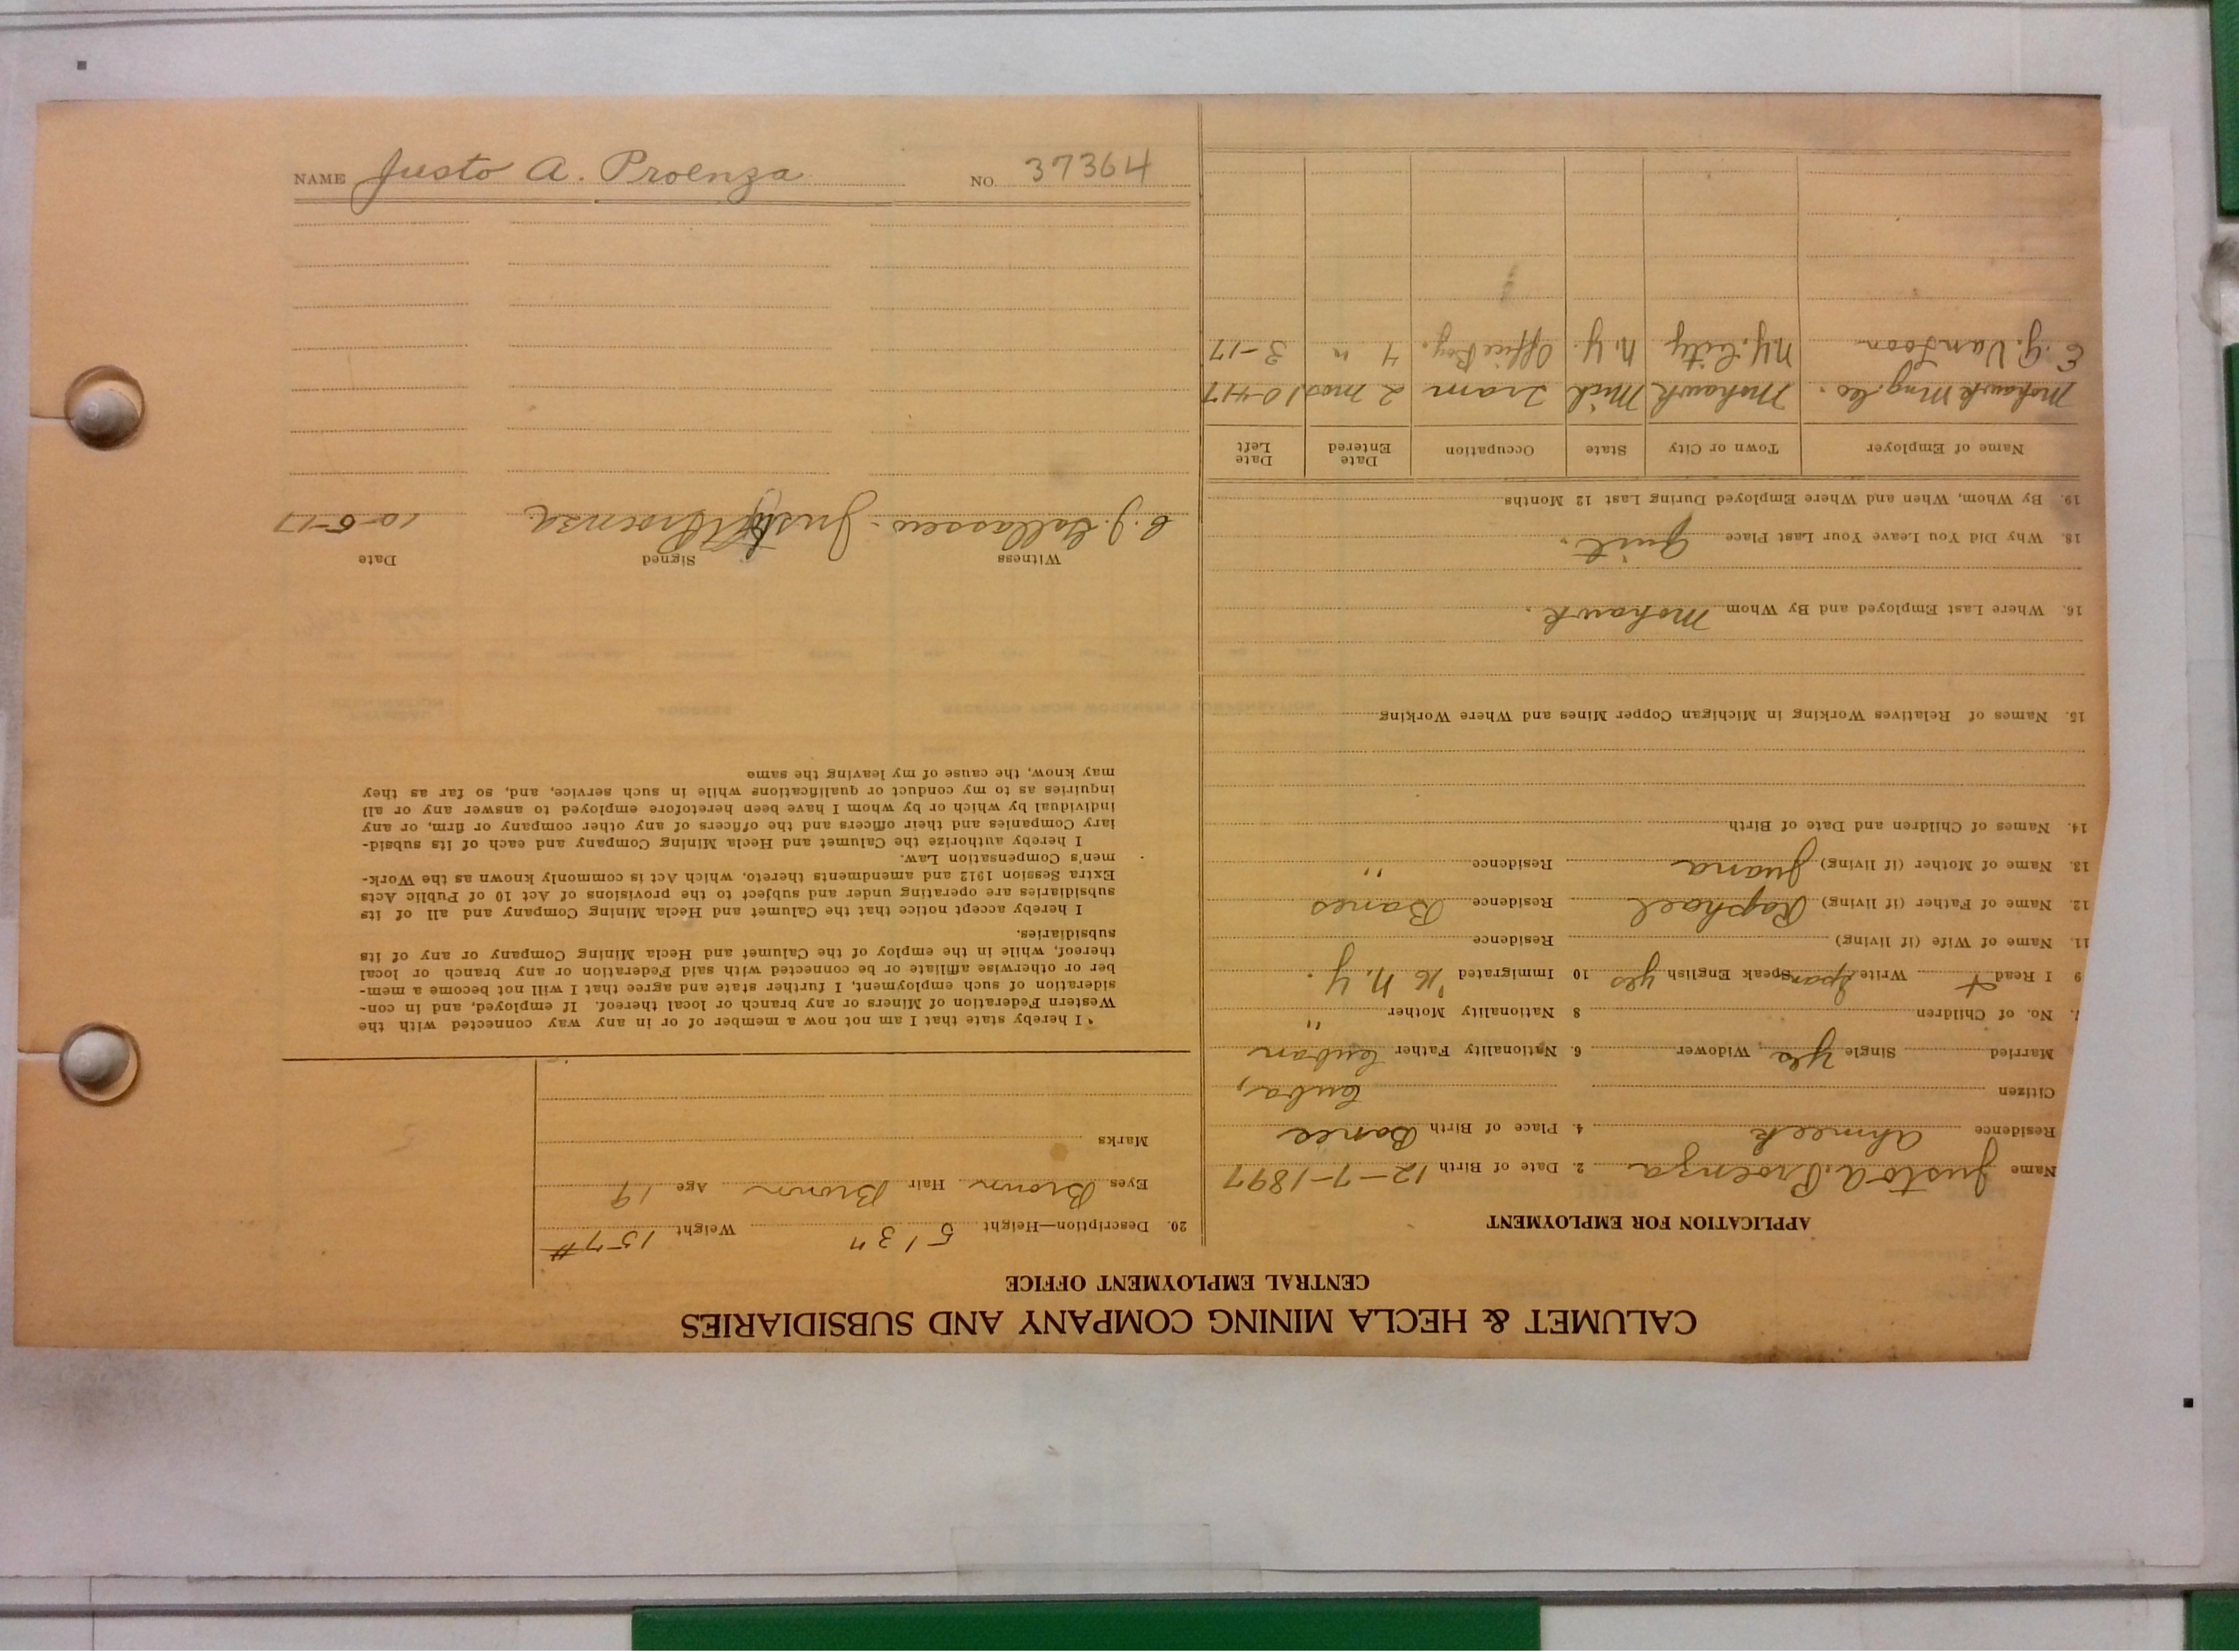 CALUMET & HECLA MINING COMPANY AND SUBSIDIARIES
CENTRAL EMPLOYMENT OFFICE
APPLICATION FOR EMPLOYMENT
Name Justo A. Proenza 2. Date of Birth 12-7-1897
Residence Ahmeek 4. Place of Birth Banes
Citizen Cuba,
Married Single yes Widower 6. Nationality Father Cuban
7. No. of Children 8 Nationality Mother "
9 I Read + Write Span Speak English yes 10 Immigrated '16 N.Y.
11. Name of Wife (if living) Residence
12. Name of Father (if living) Raphael Residence Banes
13. Name of Mother (if living) Juana Residence "
14. Names of Children and Date of Birth
15. Names of Relatives Working in Michigan Copper Mines and Where Working
16. Where Last Employed and By Whom Mohawk.
18. Why Did You Leave Your Last Place Quit.
19. By Whom, When and Where Employed During Last 12 Months
Name of Employer Town or City State Occupation Date Entered Date Left
Mohawk Mng. Co. Mohawk Mich Tram 2 mos. 10-4-17
E. G. Van Loon N.Y. City N.Y. Office Boy. 4 " 3-17
20. Description—Height 5' 3" Weight 157#
Eyes Brown Hair Brown Age 19
Marks
I hereby state that I am not now a member of or in any way connected with the
Western Federation of Miners or any branch or local thereof. If employed, and in con-
sideration of such employment, I further state and agree that I will not become a mem-
ber or otherwise affiliate or be connected with said Federation or any branch or local
thereof, while in the employ of the Calumet and Hecla Mining Company or any of its
subsidiaries.
I hereby accept notice that the Calumet and Hecla Mining Company and all of its
subsidiaries are operating under and subject to the provisions of Act 10 of Public Acts
Extra Session 1912 and amendments thereto, which Act is commonly known as the Work-
men's Compensation Law.
I hereby authorize the Calumet and Hecla Mining Company and each of its subsid-
iary Companies and their officers and the officers of any other company or firm, or any
individual by which or by whom I have been heretofore employed to answer any or all
inquiries as to my conduct or qualifications while in such service, and, so far as they
may know, the cause of my leaving the same
Witness Signed Date
C. J. Justo A Proenza. 10-5-17
NAME Justo A. Proenza NO. 37364